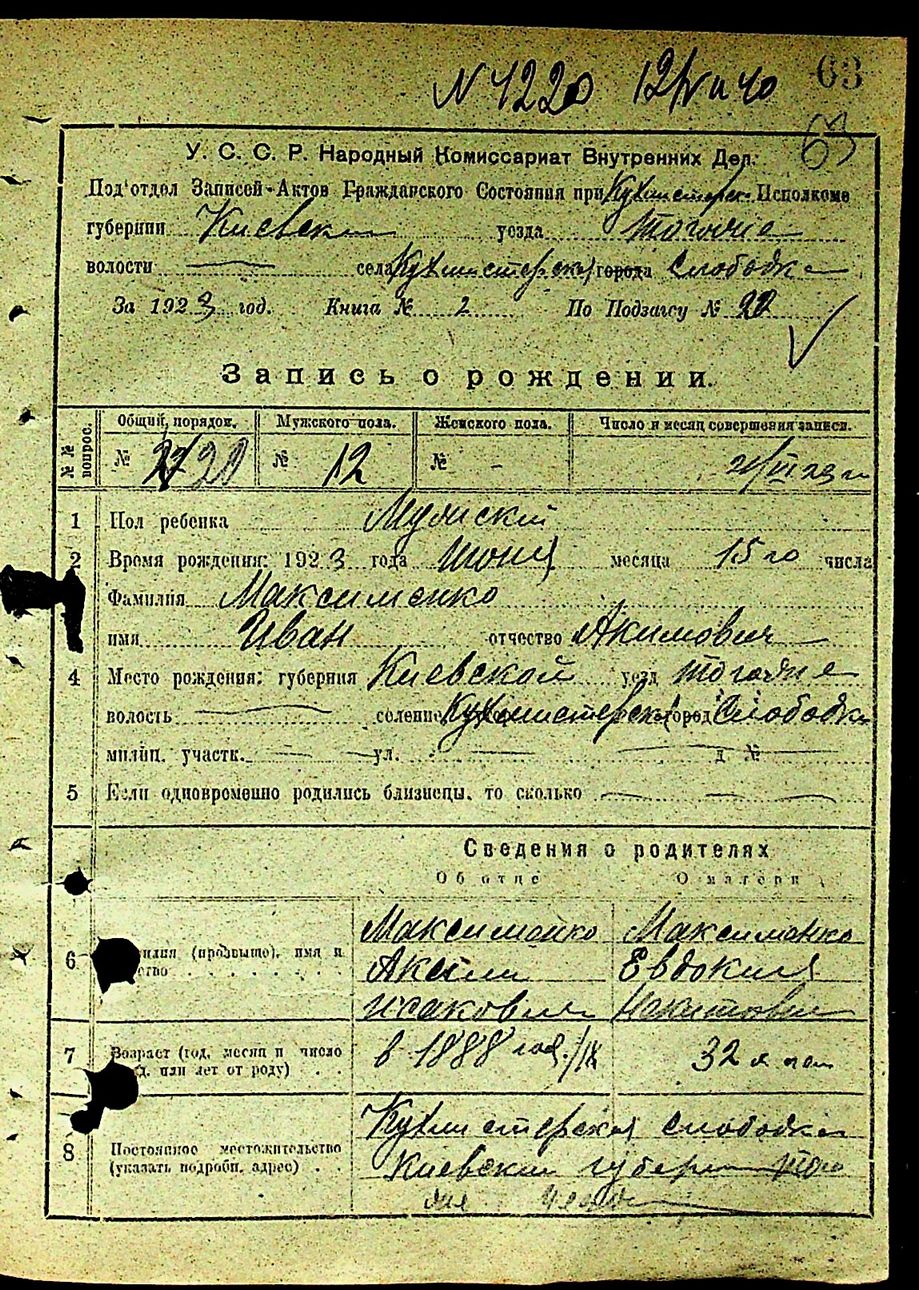 № 4220 63
63
У. С. С. Р. Народный Комиссариат Внутренних Дел.
Под'отдел Записей-Актов Гражданского Состояния при Кухмистерск. Исполкоме
губернии Киевск уезда того же
волости — села Кухмистерская города Слободка
За 1923 год. Книга № 2 По Подзагсу № 20
Запись о рождении.
№№ вопрос. Общий порядок. Мужского пола. Женского пола. Число и месяц совершения записи.
№ 20 № 12 № -
1 Пол ребенка Мужский
2 Время рождения: 1923 года Июня месяца 15го числа
Фамилия Максименко
имя Иван отчество Акимович
4 Место рождения: губерния Киевской уезд того же
волость — селение Кухмистерска город Слободка
милиц. участк. — ул. — д. № —
5 Если одновременно родились близнецы, то сколько — — —
Сведения о родителях
Об отце О матери
6 (прозвище), имя и Максименко Максименко
Аким Евдокия
Исакович Никитовн
7 Возраст (год, месяц и число в 1888 год. /IX 32 х лет
или лет от роду) . .
8 Постоянное местожительство (указать подробн. адрес) . . Кухмистерская Слободка
Киевски губерни того
же уезда